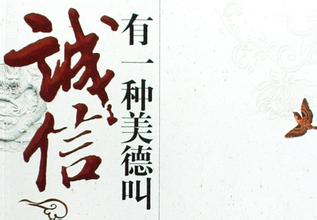 有一种美德叫
誠信